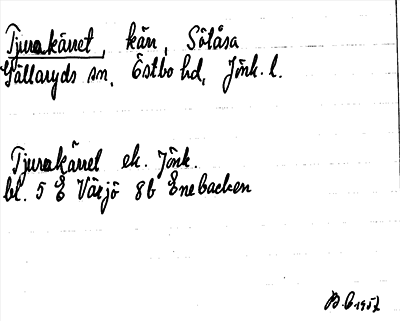 Tjurakärret, kärr, Sölåsa
Gällaryds sn, Östbo hd, Jönk. l.
Tjurakärret ek. Jönk.
bl. 5 E Växjö 8b Enebacken